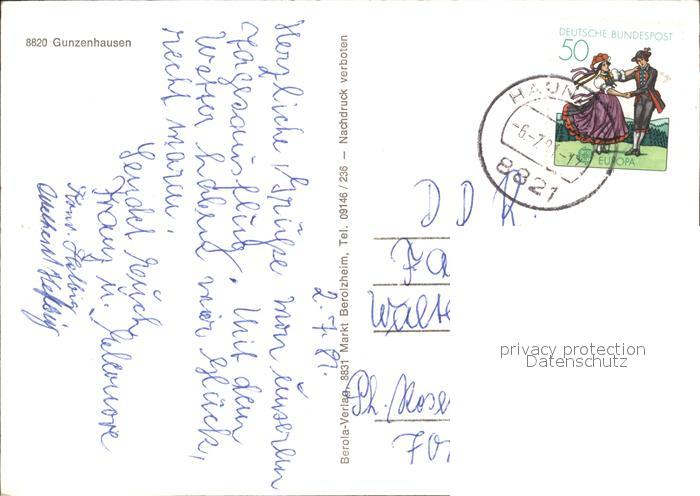 8820 Gunzenhausen
Herzliche Grüße von unseren
Tagesausflug. Mit dem
Wetter haben wir Glück,
recht warm.
Sendet Euch
Franz u. Eleonore
2.7.81.
Berola-Verlag, 8831 Markt Berolzheim, Tel. 09146/236 — Nachdruck verboten
DEUTSCHE BUNDESPOST
50
EUROPA
HAUN
8821
DDR.
Fa
Walte
Ph. Rose
70
privacy protection
Datenschutz